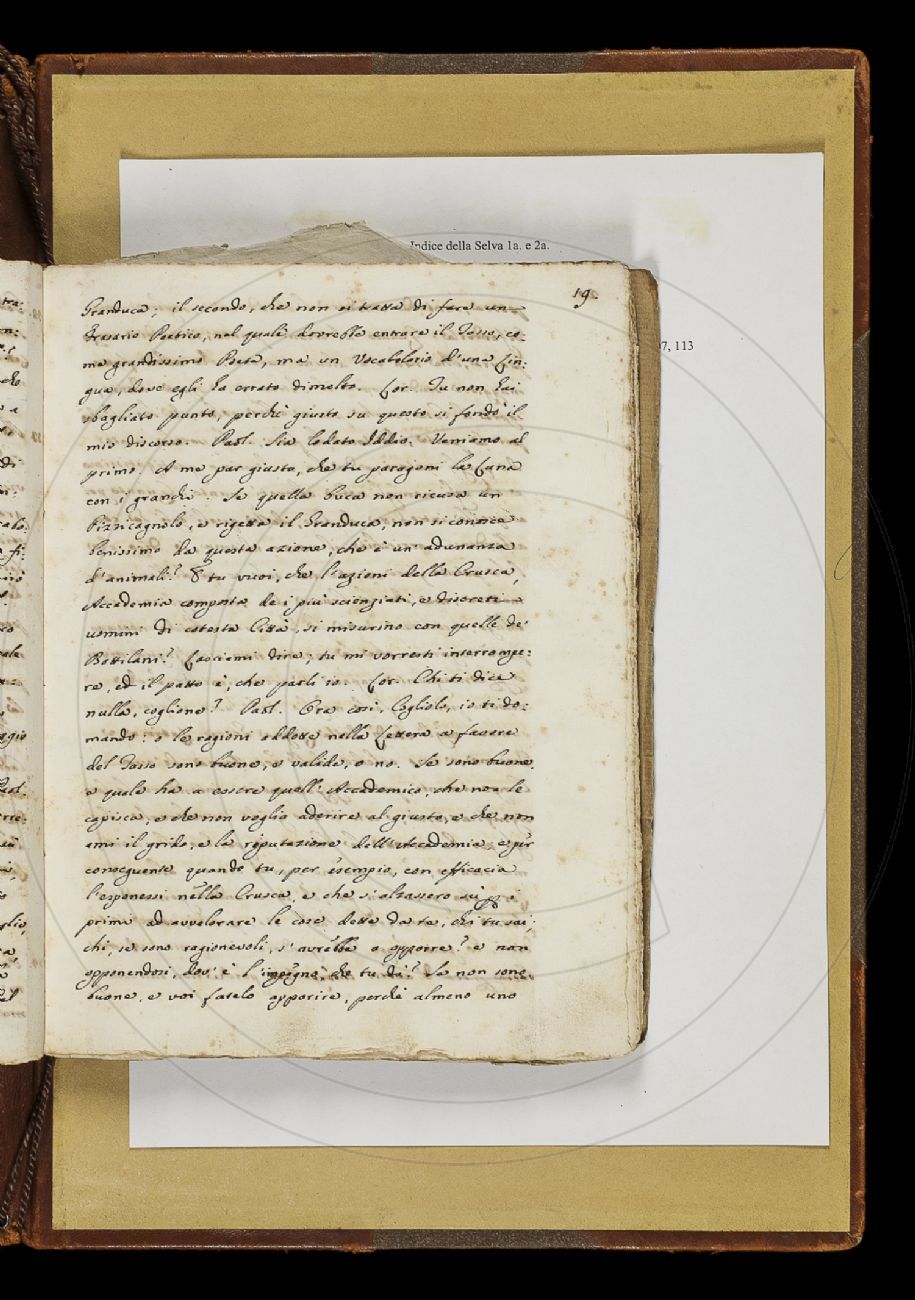 Indice della Selva 1a. e 2a.
7, 113
19.
Granduca; il secondo, che non si tratta di fare un
Frasario Poetico, nel quale dovrebbe entrare il Tasso, co-
me grandissimo Poeta, ma un Vocabolario d'una Lin:
gua, dove egli ha errato dimolto. Lor. Tu non hai
sbagliato punto, perchè giusto su questo si fondò il
mio discorso. Past. Sia lodato Iddio. Veniamo al
primo. A me par giusto, che tu paragoni la Luna
con i granchi. Se quella buca non ricusa un
Pizzicagnolo, e rigetta il Granduca, non si conosce
benissimo da questa azione, che è un' adunanza
d'animali? E tu vuoi, che l'azioni della Crusca,
Accademia composta de i più scienziati, e discreti
uomini di cotesta Città, si misurino con quelle de'
Bottilani? Lasciami dire; tu mi vorresti interrompe:
re, ed il patto è, che parli io. Lor. Chi ti dice
nulla, coglione? Past. Ora così, Cogliolo, io ti do:
mando: o le ragioni addotte nella Lettera a favore
del Tasso sono buone, e valide, o no. Se sono buone,
e quale ha a essere quell' Accademico, che non le
capisca, e che non voglia aderire al giusto, e che non
ami il grido, e la riputazione dell' Accademia, e per
conseguente quando tu, per esempio, con efficacia
l'esponessi nella Crusca, e che s'alzassero sei, o
prima ad avvalorare le cose dette da te, chi tu sai;
chi, se sono ragionevoli, s' avrebbe a opporre? e non
opponendosi, dov' è l' impegno, che tu di? Se non sono
buone, e voi fatelo apparire, perchè almeno uno